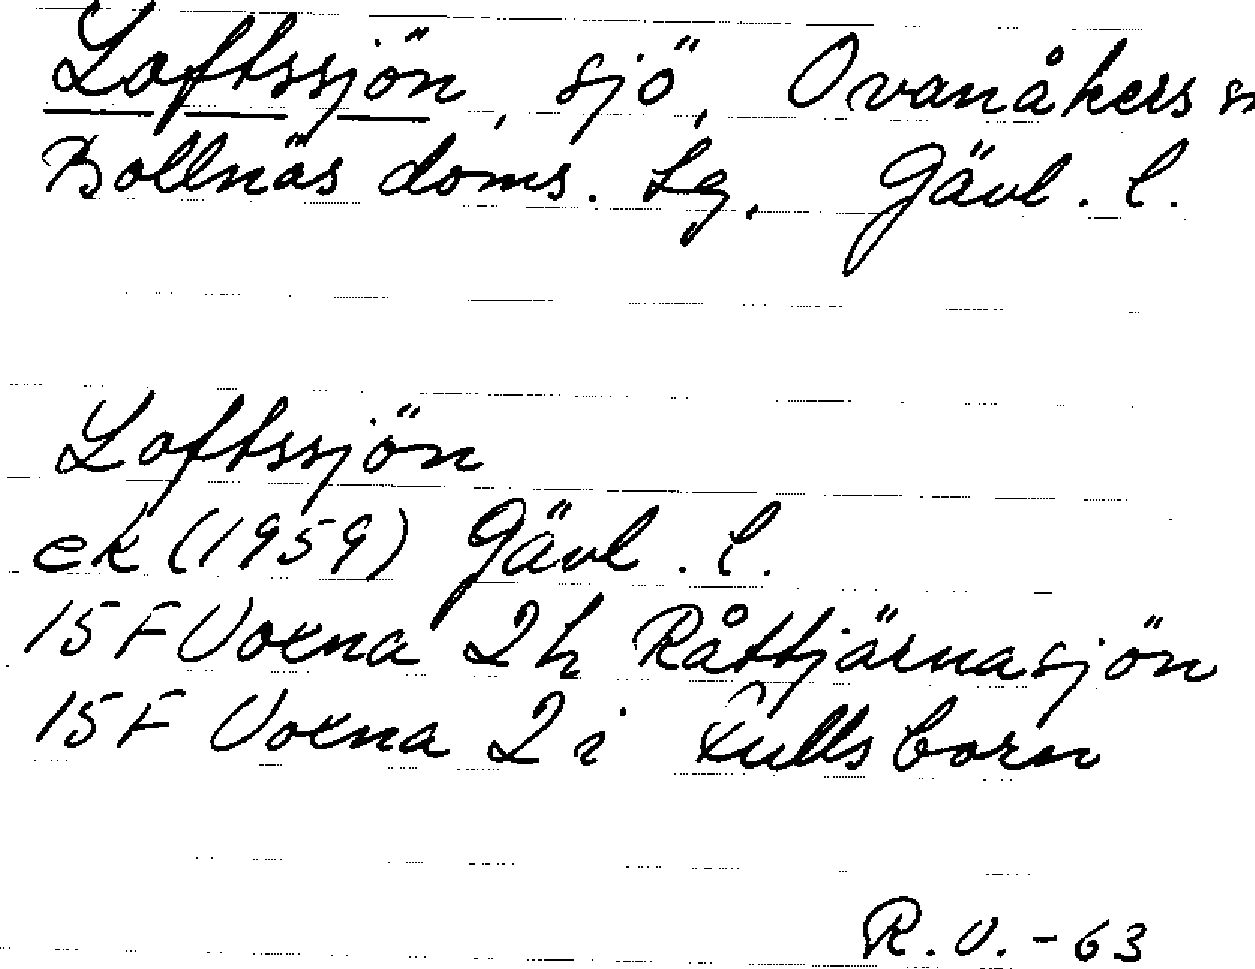 Loftssjön, sjö, Ovanåkers sn
Bollnäs doms. Lg. Gävl. l.
Loftssjön
ek (1959) Gävl. l.
15 F Voxna 2h Råttjärnasjön
15 F Voxna 2i Lullsborn
R.V.-63